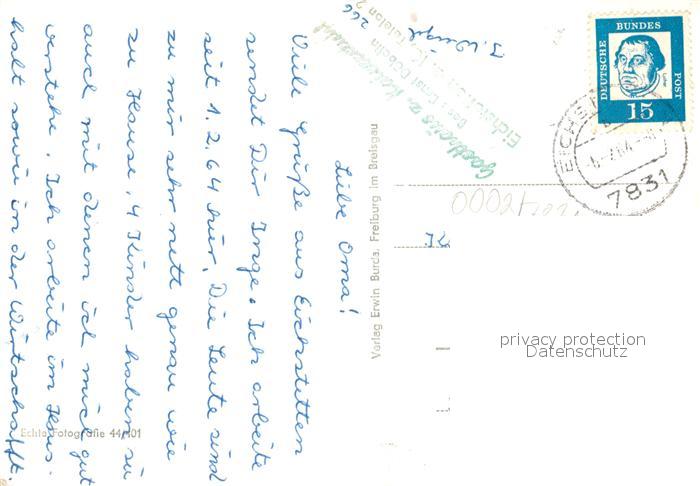 Liebe Oma!
Viele Grüße aus Eichstetten
sendet Dir Inge. Ich arbeite
seit 1.2.64 hier. Die Leute sind
zu mir sehr nett genau wie
zu Hause. 4 Kinder haben sie
auch mit denen ich mich gut
verstehe. Ich arbeite im Haus-
halt sowie in der Wirtschaft.
Echte Fotografie 44/401
Verlag Erwin Burda, Freiburg im Breisgau
266
Gasthaus z.
Bes.: Ernst Döbelin
Telefon 2
DEUTSCHE
BUNDES
POST
15
7831
privacy protection
Datenschutz